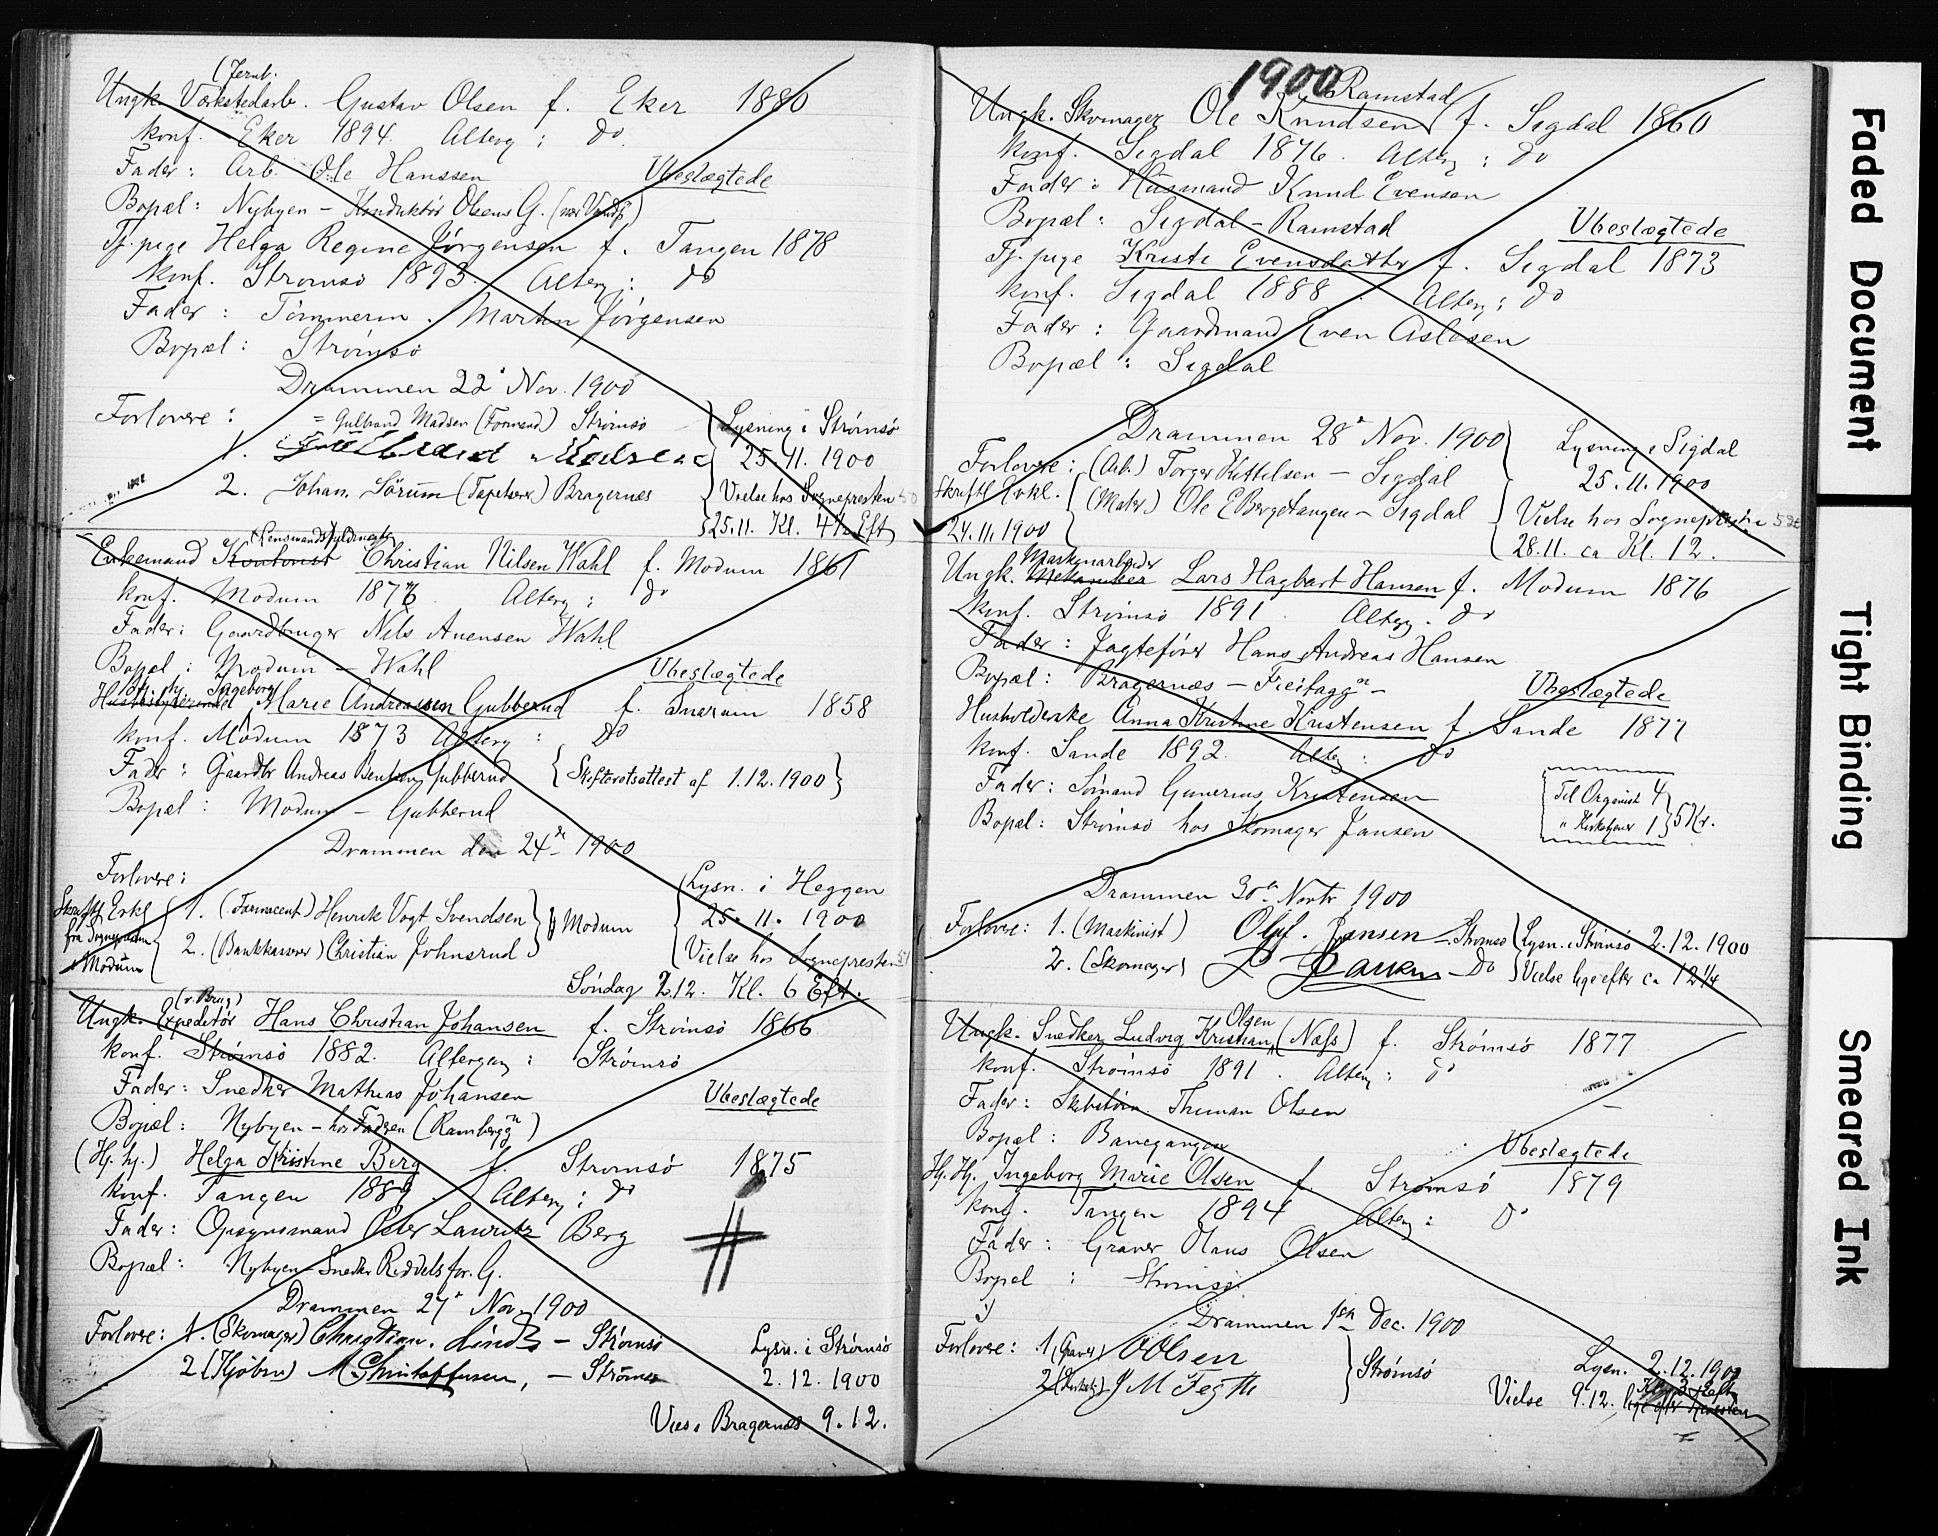 (Jernb.
Ungk. Værkstedarb. Gustav Olsen f. Eker 1880
konf. Eker 1894. Alterg: do
Fader: Arb. Ole Hanssen Ubeslægtede
Bopæl: Nybyen - Konduktör Olsens G.
Tj. pige Helga Regine Jørgensen f. Tangen 1878
konf. Strømsö 1893. Alterg: do
Fader: Tömmerm. Martin Jørgensen
Bopæl: Strömsö
Drammen 22 Nov. 1900
Forlovere: = Gulbrand Madsen (Formand) Strømsö
1. Gulbrand Madsen
2. Johan Sörum (Tapetserer) Bragernæs
Lysning i Strømsö
25.11. 1900
Vielse hos Sognepresten 50
25.11. Kl. 4½ Eft
Enkemand Kontorist Christian Nilsen Wahl f. Modum 1861
konf. Modum 1877 Alterg: do
Fader: Gaardbruger Nils Auensen Wahl
Bopæl: Modum - Wahl Ubeslægtede
Hj. hj. Ingeborg
Husbestyrerinde Marie Andreassen Gubberud f. Snarum 1858
konf. Modum 1873 Alterg: do
Fader: Gaardbr Andreas Bentsen Gubberud {Skifteretsattest af 1.12.1900}
Bopæl: Modum - Gubberud
Drammen den 24 1900
Forlovere:
Skriftl Erkl fra Sognepresten i Modum
1. (Farmaceut) Henrik Vogt Svendsen
2. (Bankkasserer) Christian Johnsrud
Modum
Lysn. i Heggen
25. 11. 1900
Vielse hos Sognepresten 51
Söndag 2.12. Kl. 6 Eft.
(v. Brug)
Ungk. Expeditør Hans Christian Johansen f. Strömsö 1866
konf. Strømsö 1882. Altergang: Strømsö
Fader: Snedker Mathias Johansen
Bopæl: Nybyen - hos Faderen (Rambergg) Ubeslægtede
(Hj. hj.) Helga Kristine Berg f. Strömsö 1875
konf. Tangen 1889. Alterg: do
Fader: Opsynsmand Peter Lauritz Berg
Bopæl: Nybyen - Snedker Riddelsfor. G.
Drammen 27 Nov. 1900
Forlovere: 1. (Skomager) Christian Lind - Strømsö
2 (Kjöbm) M Christoffersen, - Strömsø
Lysn. i Strømsö
2. 12. 1900
Vies i Bragernæs 9.12.
1900
Ramstad
Ungk. Skomager Ole Knudsen f. Sigdal 1860
konf. Sigdal 1876. Alterg: do
Fader: Husmand Knud Evensen
Bopæl: Sigdal - Ramstad Ubeslægtede
Tj. pige Kristi Evensdatter f. Sigdal 1873
konf. Sigdal 1888. Alterg: do
Fader: Gaardmand Even Aslesen
Bopæl: Sigdal
Drammen 28 Nov. 1900
Forlovere: (Arb.) Torger Kittelsen - Sigdal
Skriftl Erkl. 24.11.1900
(Mater.) Ole E Bergetangen - Sigdal
Lysning i Sigdal
25. 11. 1900
Vielse hos Sognepresten
28.11. ca Kl. 12.
Maskinarbeider
Ungk. Mekaniker Lars Hagbart Hansen f. Modum 1876
konf. Strömsö 1891. Alterg. do
Fader: Jagtefører Hans Andreas Hansen
Bopæl: Bragernæs - Freitagg Ubeslægtede
Husholderske Anna Kristine Kristensen f. Sande 1877
konf. Sande 1892. Alterg: do
Fader: Sömand Gunerius Kristensen
Bopæl: Strömsö hos Skomager Jansen
Til Organist 4
" Kirketjener 1
5 Kr.
Drammen 30 Novbr 1900
Forlovere: 1. (Maskinist) Oluf. Jansen - Strömsö
2. (Skomager) - do
Lysn. i Strömsö 2.12. 1900
Vielse lige efter ca 12¼
Olsen
Ungk. Snedker Ludvig Kristian (Næss) f. Strømsö 1877
konf. Strømsö 1891. Alterg: do
Fader: Skibstöm. Thuman Olsen
Bopæl: Banegangen Ubeslægtede
Hj. Hj. Ingeborg Marie Olsen f. Strömsö 1879
konf. Tangen 1894 Alterg: do
Fader: Graver Olaus Olsen
Bopæl: Strømsö
Drammen 1 Dec. 1900
Forlovere: 1 (Graver) O Olsen
2 (Kirketj.) J M Fegth
Strömsö
Lysn. 2.12. 1900
Vielse 9.12. Kl. 3 Eft
Faded Document
Tight Binding
Smeared Ink